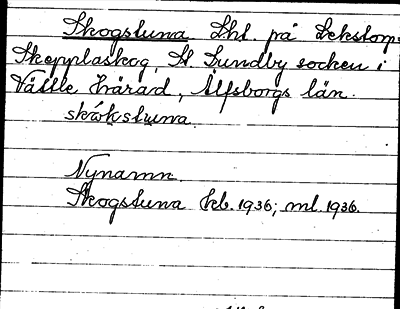 Skogstuna Lht. på Lekstorp
Skepplaskog, St. Lundby socken i
Vättle härad, Älfsborgs län.
skókstuna.
Nynamn.
Skogstuna kb. 1936; ml. 1936.